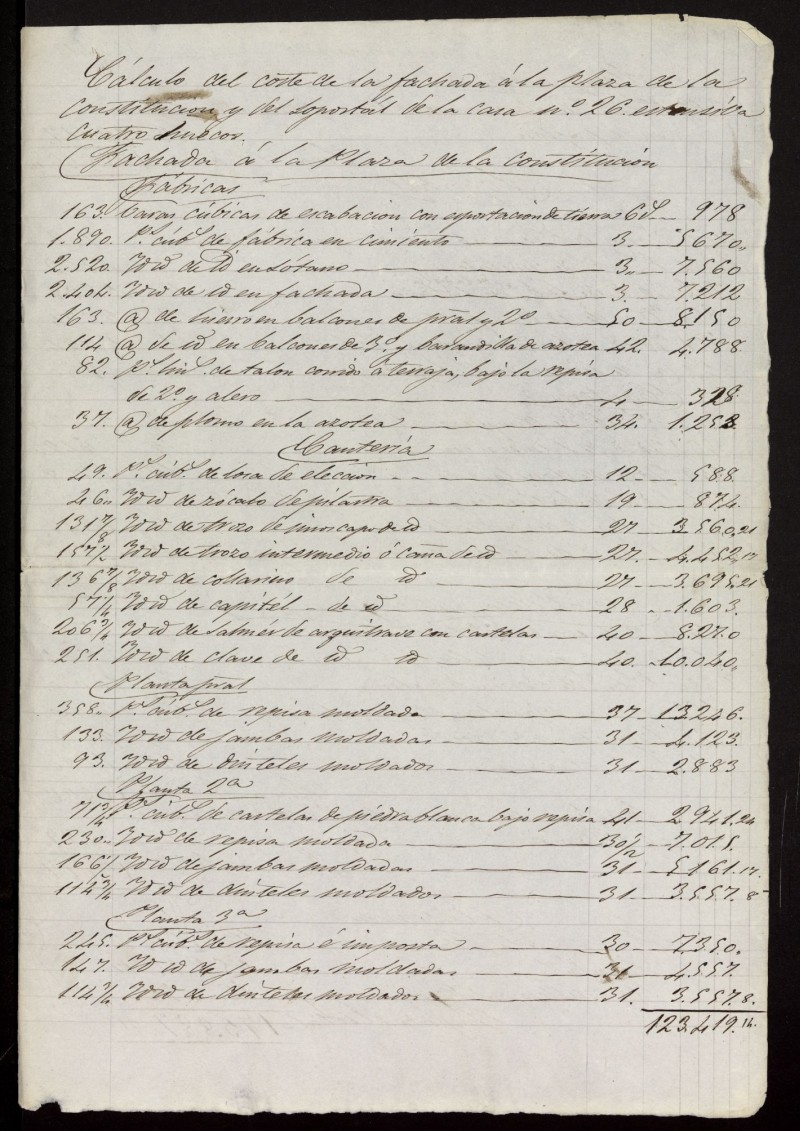 Cálculo del coste de la fachada á la plaza de la
Constitucion y del soportál de la casa nº 26. estensiva
cuatro huecos.
Fachada á la Plaza de la Constitución
Fábricas
163. baras cúbicas de escabacion con esportacion de tierra 6 978
1.890. Ps cúbs de fábrica en cimiento 3. 5670
2.520. Id id de id en sótano 3 7.560
2.404. Id id de id en fachada 3. 7.212
163. @ de hierro en balcones de pral y 2º 50 8.150
114 @ de id en balcones de 3º y barandilla de azotea 42. 4.788.
82. Ps lins de talon corrido á terraja, bajo la repisa
de 2º y alero 4 328
37. @ de plomo en la azotea 34. 1.258
Cantería
49. Ps cúbs de losa de elección 12 588.
46. Id id de zócalo de pilastra 19 874.
131 7/8 Id id de trozo de imoscapo de id 27 3.560,21
157 Id id de trozo intermedio ó caña de id 27. 4.252,17
136 7/8 Id id de collarino de id 27 3.695,21
57 1/4 Id id de capitél de id 28 1.603.
206 3/4 Id id de salmér de arquitrave con cartelas 40 8.270
251. Id id de clave de id id 40. 10.040
Planta pral
358. Ps cúbs de repisa moldada 37 13.246.
133. Id id de jambas moldadas 31 4.123.
93. Id id de dinteles moldados 31 2.883
Planta 2ª
71 3/4 Ps cúbs de cartelas de piedra blanca bajo repisa 41 2941.24
230. Id id de repisa moldada 30 1/2 7.015.
166 1/2 Id id de jambas moldadas 31 5161.17.
114 3/4 Id id de dinteles moldados 31 3.557.8
Planta 3ª
245. Ps cúbs de repisa é imposta 30 7.350.
147. Id id de jambas moldadas 31 4.557.
114 3/4 Id id de dinteles moldados 31. 3.557.8.
123.419.14.